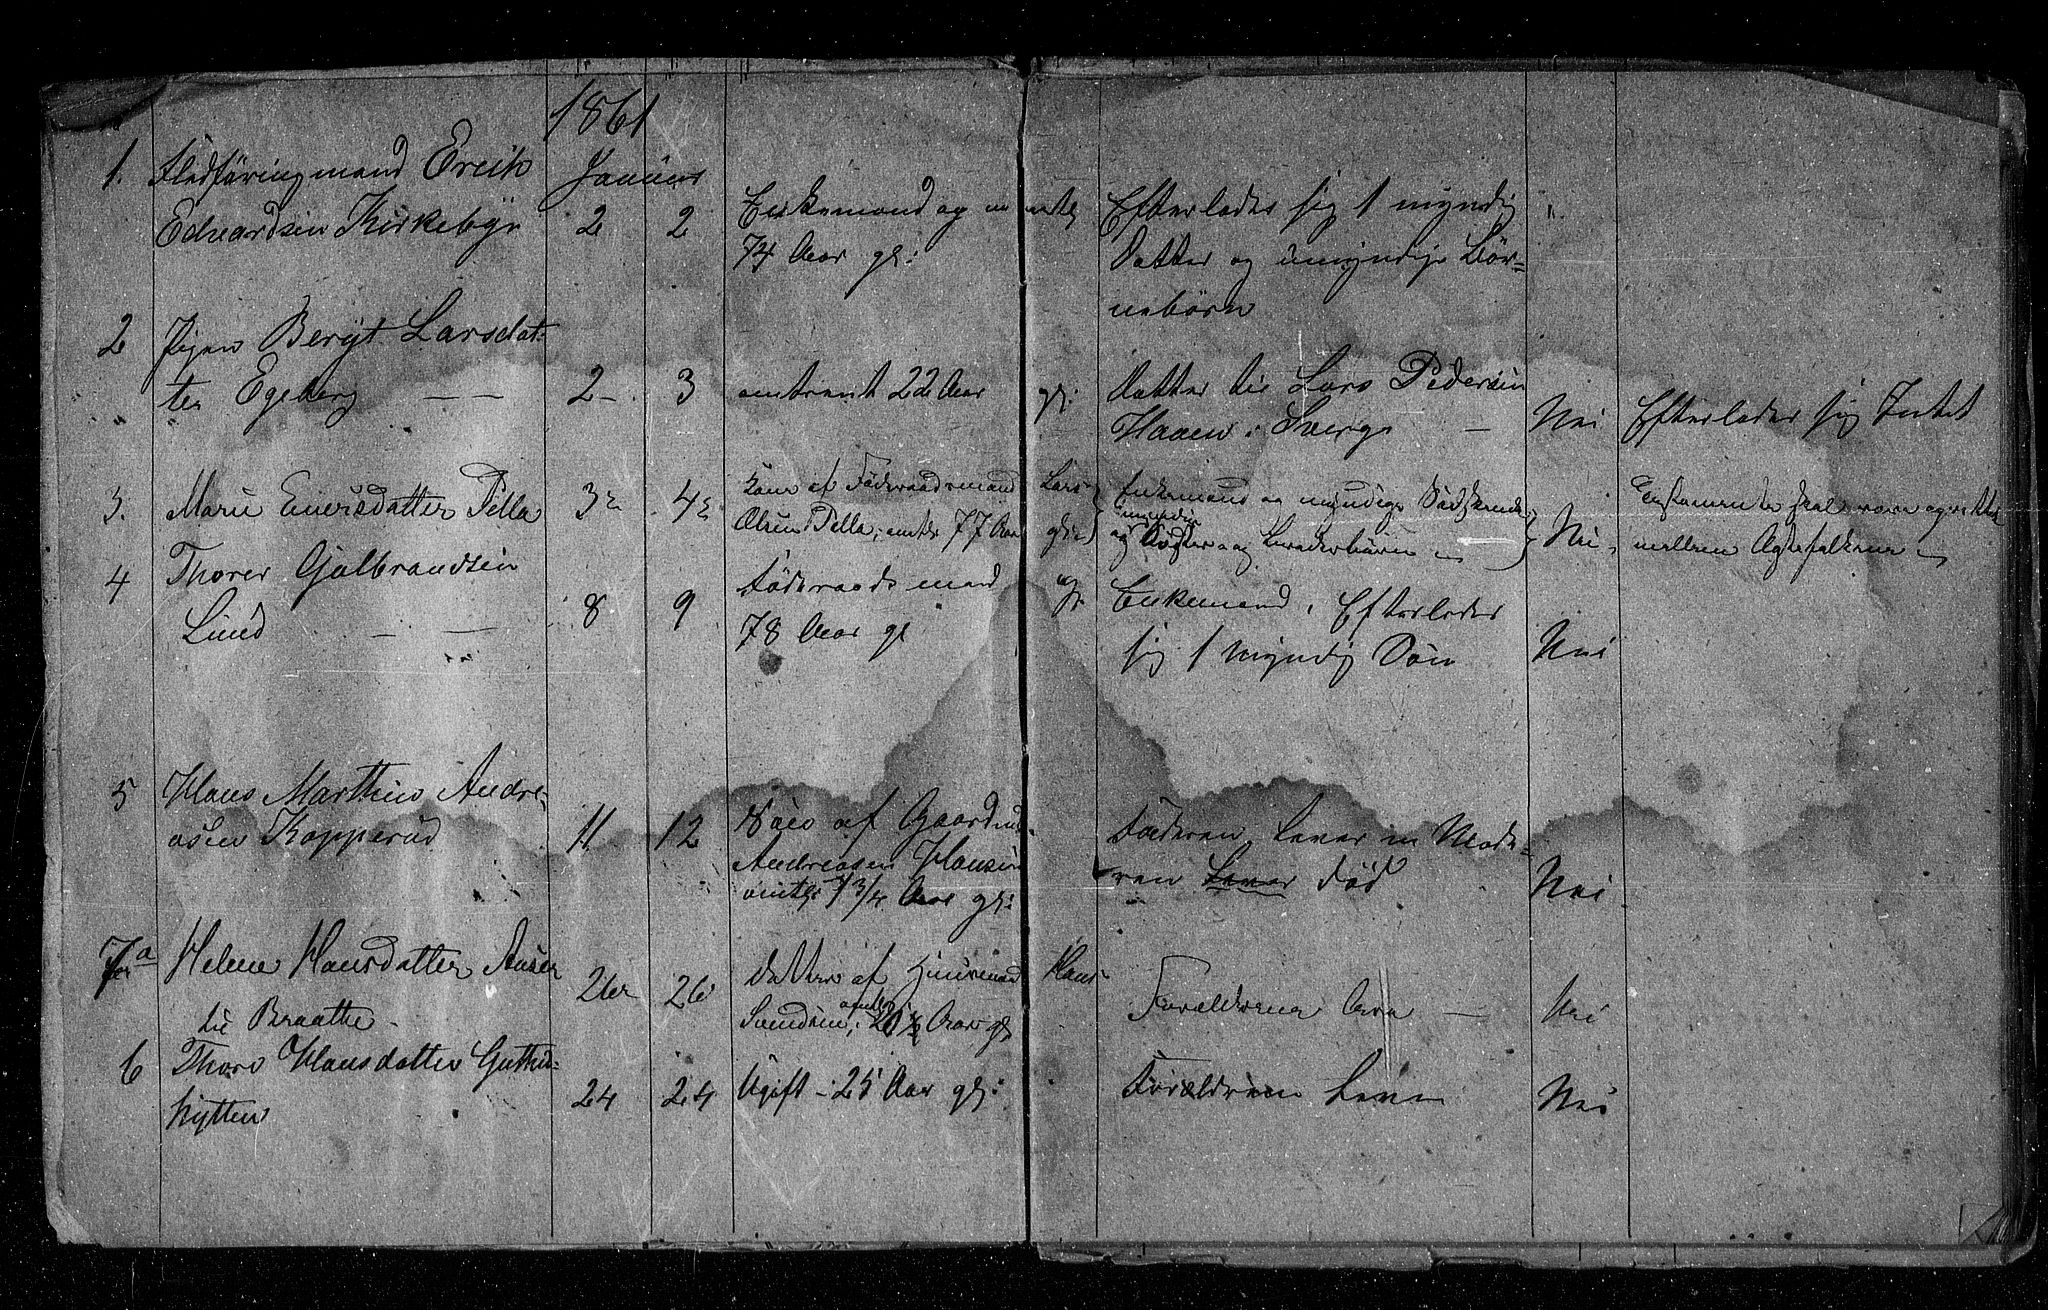 1861
1. Fledføringmand Ereik Januar
Edvardsen Kirkebye 2 2 Enkemand og omtr
74 Aar gl: Efterlader sig 1 myndig "
Datter og umyndige Bør=
nebørn
2 Pigen Beryt Larsdat-
ter Egeberg — — 2 - 3 omtrent 22 Aar gl: Datter til Lars Pedersen
Haaen i Sverge — Nei Efterlader sig Intet
3. Marie Eversdatter Pella 3 4 Kone af Føderaadsmand Lars
Olsen Pella, omtr 77 Aar gl: Enkemand og myndige Sødskende
myndige
og Søster og Broderbørn Nei, Testamente skal være oprettet
mellem Ægtefolkene
4 Thorer Gulbrandsen
Lund — — 8 9 Føderaadsmand
78 Aar gl Enkemand, Efterlader
sig 1 myndig Søn Nei
5 Hans Marthin Andre-
asen Kopperud 11 12 Søn af Gaardmd.
Andreasen Hansen
omtr 1 3/4 Aar gl: Faderen Lever m Mode-
ren Lever død Nei
7 a Helene Hansdatter
til Braathe 26 26 Datter af Huusmand Hans
Svendsen, omtr 1/2 Aar gl Forældrene Leve — Nei
6 Thore Hansdatter
hytten 24 24 Ugift - 25 Aar gl: Forældrene Leve Nei